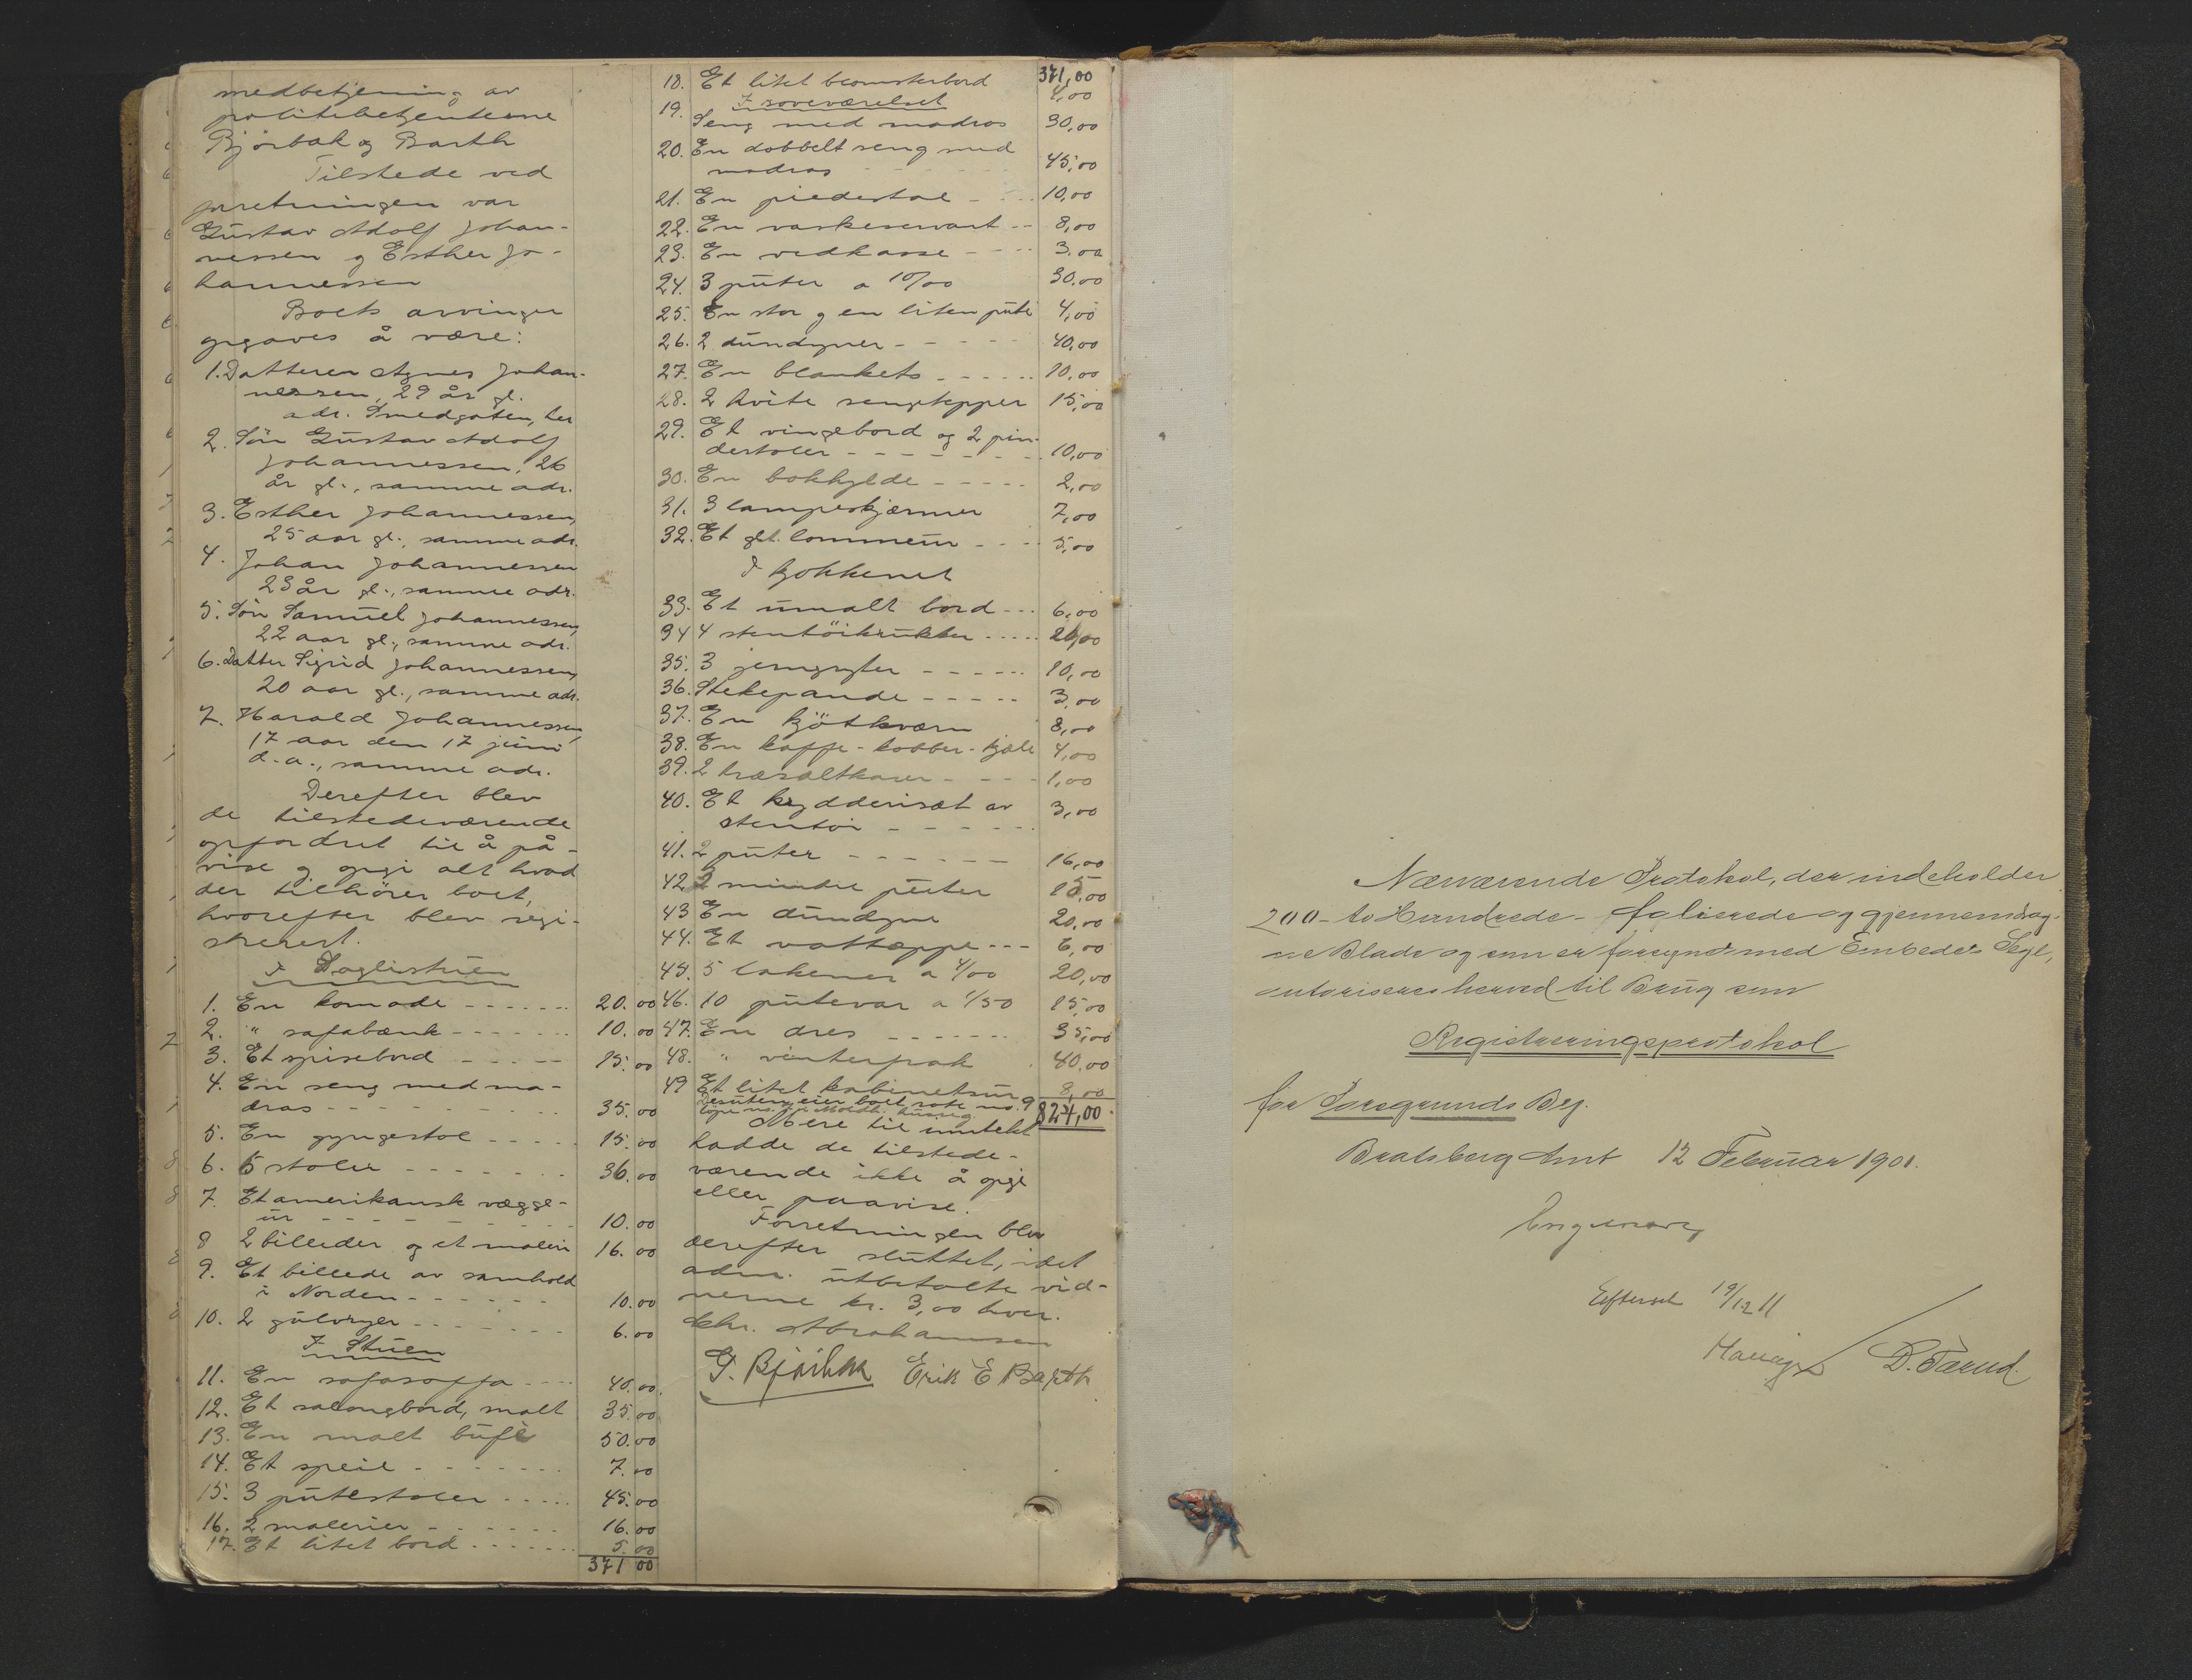 medbetjening av
politibetjenterne
Bjørbak og Barth
Tilstede ved
forretningen var
Gustav Adolf Johan-
nessen og Esther Jo-
hannessen
Boets arvinger
opgaves å være:
1. Datteren Agnes Johan-
nessen, 29 år gl.
adr. Smedgaten, her
2. Søn Gustav Adolf
Johannessen, 26
år gl., samme adr.
3. Esther Johannessen,
25 aar gl., samme adr.
4. Johan Johannessen
23 år gl., samme adr.
5. Søn Samuel Johannessen,
22 aar gl., samme adr.
6. Datter Sigrid Johannessen,
20 aar gl., samme adr.
7. Harald Johannessen,
17 aar den 17 juni
d.a., samme adr.
Derefter blev
de tilstedeværende
opfordret til å på-
vise og opgi alt hvad
der tilhører boet,
hvorefter blev regi-
streret.
I Daglistuen
1. En komode 20.00
2. " sofabænk 10.00
3. Et spisebord 15.00
4. En seng med ma-
dras 35.00
5. En gyngestol 15.00
6. 6 stoler 36.00
7. Et amerikansk vægge-
ur 10.00
8 2 billeder og et maleri 16.00
9. Et billede av samhold
i Norden 10.00
10. 2 gulvryer 6.00
I Stuen
11. En sofa 40.00
12. Et salongbord, malt 35.00
13. En malt bufè 50.00
14. Et speil 7.00
15. 3 putestoler 45.00
16. 2 malerier 16.00
17. Et litet bord 5.00
371 00
371,00
18. Et litet blomsterbord 4,00
I soveværelset
19. Seng med madras 30,00
20. En dobbelt seng med
madras 45,00
21. En piedestal 10,00
22. En vaskeservant 8,00
23. En vedkasse 3.00
24. 3 puter a 10/00 30.00
25. En stor og en liten pute 4,00
26. 2 dundyner 40,00
27. En blankets 10,00
28. 2 hvite sengtepper 15,00
29. Et vingebord og 2 pin-
destoler 10,00
30. En bokhylde 2,00
31. 3 lampeskjærmer 7,00
32. Et glt. lommeur 5,00
I kjøkkenet
33. Et umalt bord 6,00
34 4 stentøikrukker 20,00
35. 3 jerngryter 10,00
36. Stekepande 3,00
37. En kjøtkværn 8,00
38. En kaffe-kobber-kjele 4,00
39. 2 træsaltkarer 1,00
40. Et krydderisæt av
stentøi 3,00
41. 2 puter 16,00
42. 2 mindre puter
43 En dundyne 20,00
44. Et vattæppe 6,00
45. 5 lakener a 4/00 20,00
46. 10 putevar a 1/50 15,00
47. En dres 35,00
48. " vinterfrak 40.00
49 Et litet kabinetsur 8,00
Desuten eier boet
824,00
Mere til inntekt
hadde de tilstede-
værende ikke å opgi
eller paavise.
Forretningen blev
derefter sluttet, idet
adm. utbetalte vid-
nerne kr. 3,00 hver.
Chr. Abrahamsen
G. Bjørbak Erik E Barth
Nærværende Protokol, der indeholder
200 - to Hundrede - folierede og gjennemdrag-
ne Blade og som er forsynet med Embedets Segl,
autoriseres herved til Brug som
Registreringsprotokol
for Porsgrunds Bÿ.
Bratsberg Amt 12 Februar 1901.
Efterset 19/12 11